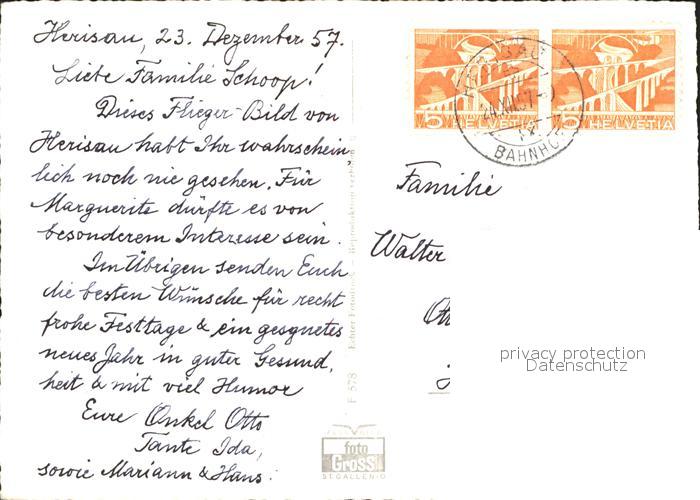 Herisau, 23. Dezember 57.
Liebe Familie Schoop!
Dieses Flieger-Bild von
Herisau habt Ihr wahrschein
lich noch nie gesehen. Für
Marguerite dürfte es von
besonderem Interesse sein.
Im Übrigen senden Euch
die besten Wünsche für recht
frohe Festtage & ein gesgnetes
neues Jahr in guter Gesund,
heit & mit viel Humor
Eure Onkel Otto
Tante Ida,
sowie Mariann & Hans.
F 578
foto
Gross
ST. GALLEN-O
5 HELVETIA
5 HELVETIA
HERISAU
BAHNHO
Familie
Walter
privacy protection
Datenschutz